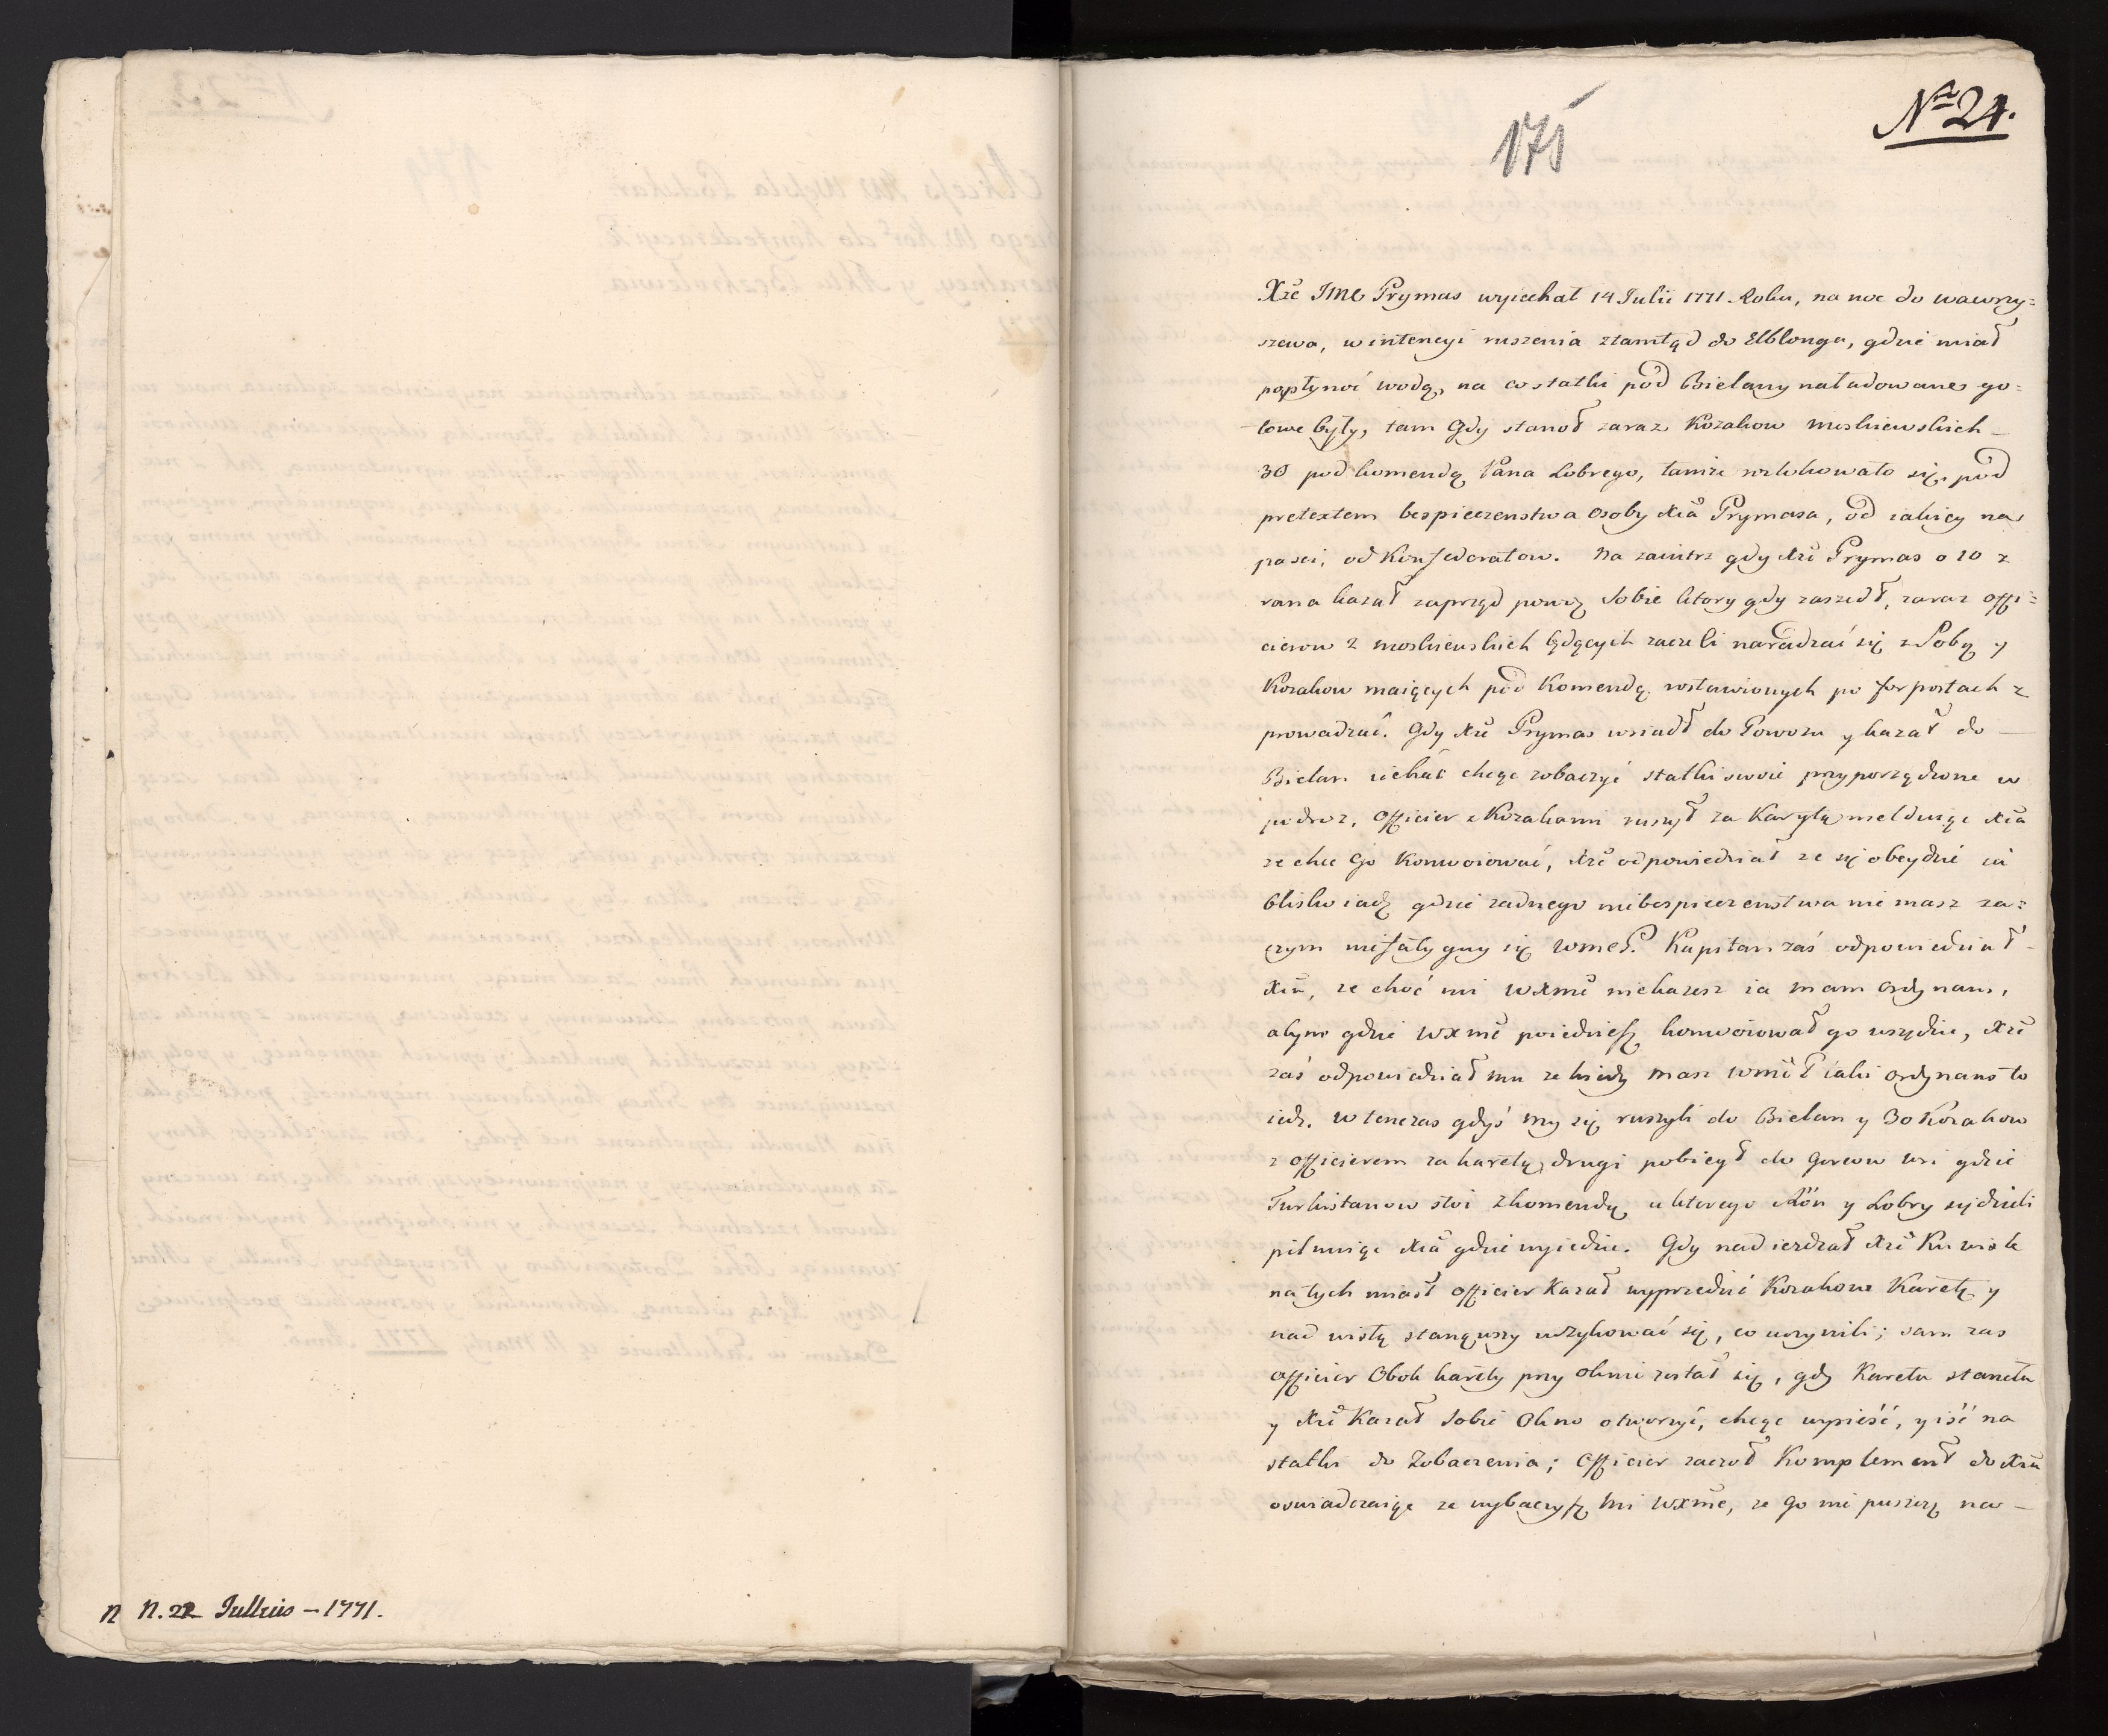 N. 22 Jullius – 1771.
N
175
Nro 24.
Xże JMC Prymas wyiechał 14 Julii 1771 Roku, na noc do wawrzy=
szewa, w intencyi ruszenia ztamtąd do Elblonga, gdzie miał
popłynoć wodą, na co statki pod Bielany naładowane go=
towe były, tam Gdy stanoł zaraz Kozakow moskiewskich –
30 pod komendą Pana Lobrego, tamże ulokowało się, pod
pretextem bespieczenstwa osoby Xcia Prymasa, od iakiey na
pasci, od Konfederatow. Na zaiutrz gdy Xże Prymas o 10 z
rana kazał zaprząd powoz Sobie ktory gdy zaszedł, zaraz offi=
cierow 2 moskiewskich będących zaczeli naradzać się z Sobą y
Kozakow maiących pod Komendą rostawionych po forpostach z
prowadzać. Gdy Xże Prymas wsiadł do Powozu y kazał do –
Bielan iechać chcąc zobaczyć statki swoie przyporządzone w
podroz, officier z Kozakami ruszył za Karytą melduiąc Xcia
ze chce Go Konwoiować, Xże odpowiedział ze się obeydzie ia
blisko iadę gdzie zadnego niebespieczenstwa nie masz za=
czym nie fatyguy się Kapitan zaś odpowiedział –
Xciu, ze choć mi WXMć niekazesz ia mam Ordynans,
abym gdzie WXMć poiedziesz konwoiował go wszędzie, Xże
zaś odpowiedział mu ze kiedy masz iaki ordynans to
iedz. w tenczas gdyś my się ruszyli do Bielan y 30 Kozakow
z officierem za karetą, drugi pobiegł do wsi gdzie
Turkistanow stoi z komendą u ktorego y Lobry siedzieli
pilnuiąc Xcia gdzie wyiedzie. Gdy nad iezdzał Xże Ku wisle
natych miast officier Kazał wyprzedzić Kozakow Karetę y
nad wisłą stanąwszy uszykować się, co uczynili; sam zas
officier Obok karety przy oknie został się, gdy Kareta staneła
y Xże Kazał Sobie Okno otworzyć, chcąc wysieść, y iść na
statki do Zobaczenia; Officier zaczoł Komplement do Xcia
oswiadczaiąc ze wybaczysz mi WXMć, ze go nie puszczę na –